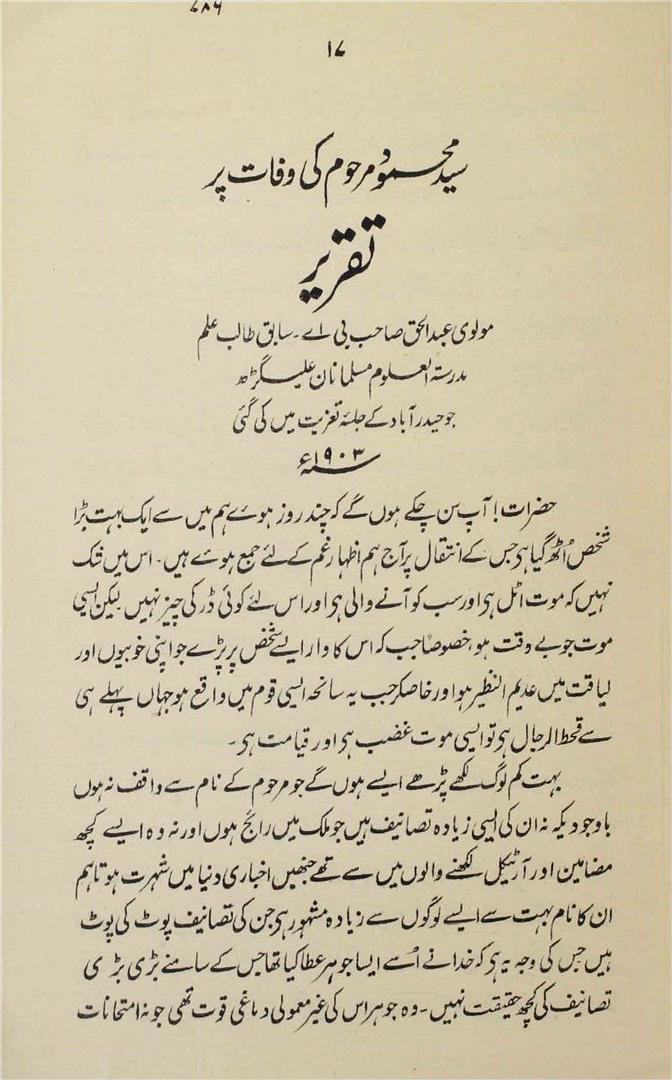 ۷۸۶
۱۷
سید محمود مرحوم کی وفات پر
تقریر
مولوی عبدالحق صاحب بی اے۔ سابق طالب علم
مدرسۃ العلوم مسلمانان علیگڑھ
جو حیدرآباد کے جلسۂ تعزیت میں کی گئی
سنہ ۱۹۰۳ء
حضرات! آپ سن چکے ہوں گے کہ چند روز ہوے ہم میں سے ایک بہت بڑا
شخص اُٹھ گیا ہی جس کے انتقال پر آج ہم اظہار غم کے لئے جمع ہوے ہیں۔ اس میں شک
نہیں کہ موت اٹل ہی اور سب کو آنے والی ہی اور اس لئے کوئی ڈر کی چیز نہیں لیکن ایسی
موت جو بے وقت ہو، خصوصاً جب کہ اس کا وار ایسے شخص پر پڑے جو اپنی خوبیوں اور
لیاقت میں عدیم النظیر ہو اور خاصکر جب یہ سانحہ ایسی قوم میں واقع ہو جہاں پہلے ہی
سے قحط الرجال ہی تو ایسی موت غضب ہی اور قیامت ہی۔
بہت کم لوگ لکھے پڑھے ایسے ہوں گے جو مرحوم کے نام سے واقف نہ ہوں
باوجودیکہ نہ ان کی ایسی زیادہ تصانیف ہیں جو ملک میں رائج ہوں اور نہ وہ ایسے کچھ
مضامین اور آرٹیکل لکھنے والوں میں سے تھے جنھیں اخباری دنیا میں شہرت ہو تاہم
ان کا نام بہت سے ایسے لوگوں سے زیادہ مشہور ہی جن کی تصانیف پوٹ کی پوٹ
ہیں جس کی وجہ یہ ہی کہ خدا نے اُسے ایسا جوہر عطا کیا تھا جس کے سامنے بڑی بڑی
تصانیف کی کچھ حقیقت نہیں۔ وہ جوہر اس کی غیر معمولی دماغی قوت تھی جو نہ امتحانات